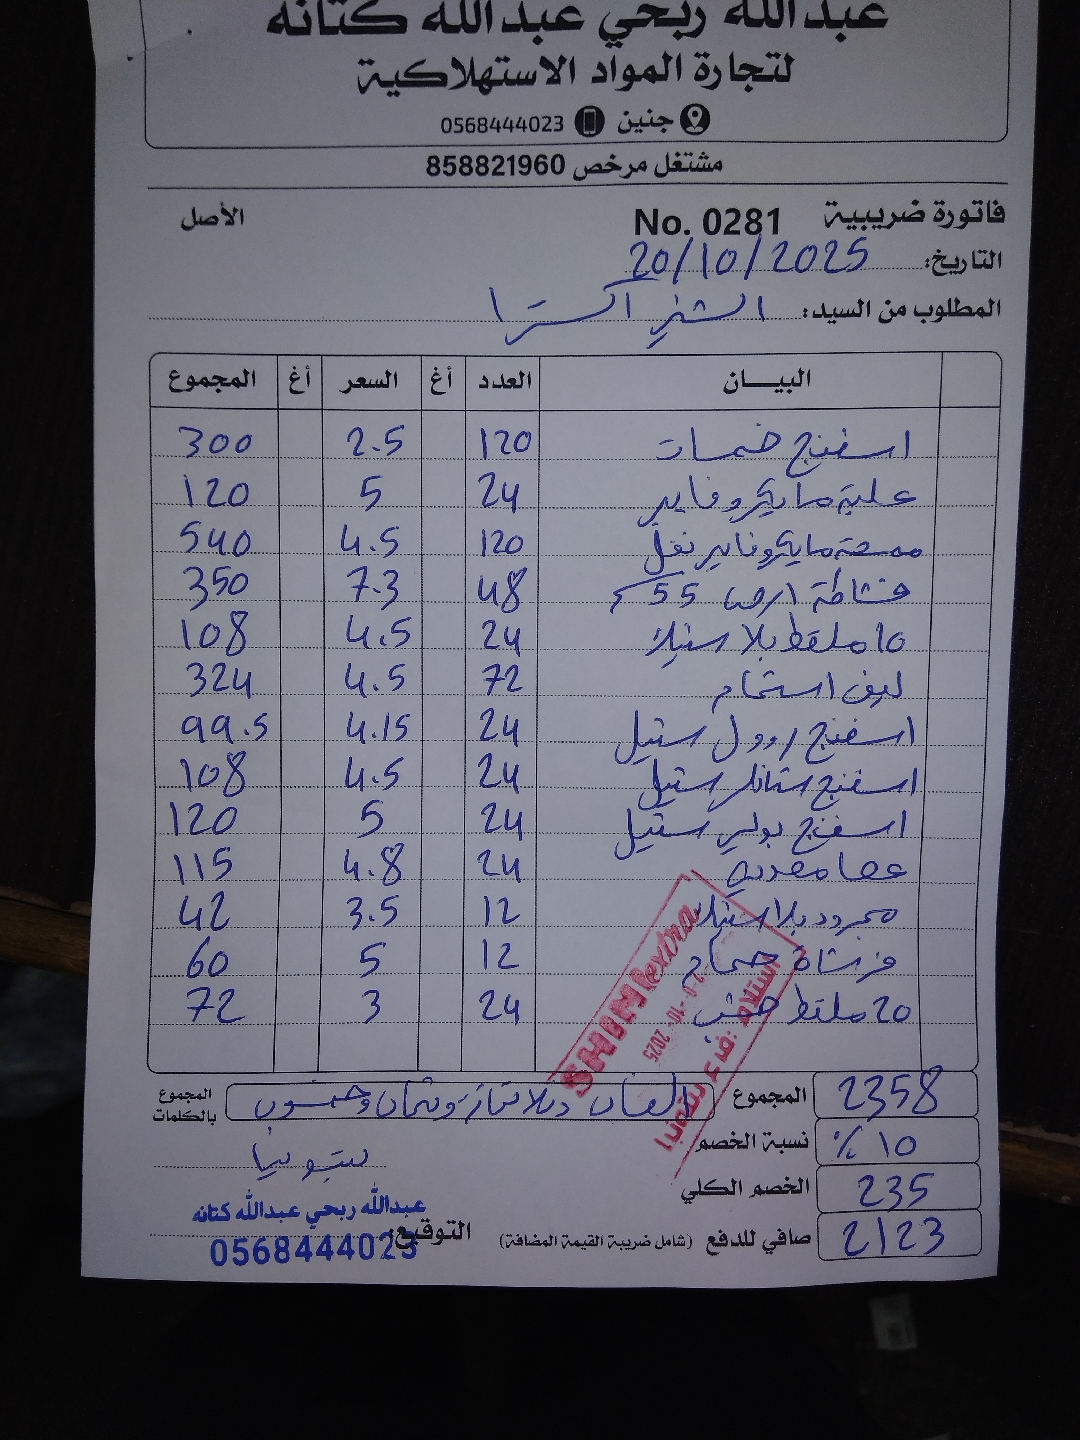 عبدالله ربحي عبدالله كتانه
لتجارة المواد الاستهلاكية
جنين 0568444023
مشتغل مرخص 858821960
فاتورة ضريبية No. 0281 الأصل
التاريخ: 20/10/2025
المطلوب من السيد: الشني اكسترا
البيـــان العدد أغ السعر أغ المجموع
اسفنج خمسات 120 2.5 300
علبة مايكروفايبر 24 5 120
ممسحة مايكروفايبر نقل 120 4.5 540
قشاطة ارض 55 48 7.3 350
10 ملقط بلاستيك 24 4.5 108
ليف استحمام 72 4.5 324
اسفنج روول ستيل 24 4.15 99.5
اسفنج ستانلس ستيل 24 4.5 108
اسفنج بولي ستيل 24 5 120
عصا معدنية 24 4.8 115
مجرود بلاستيك 12 3.5 42
فرشاة حمام 12 5 60
20 ملقط خشب 24 3 72
SHINI extra
20-10-2025
استلام :فرع بيتونيا
المجموع 2358
المجموع بالكلمات الفان وثلاثمائة وثمان وخمسون
نسبة الخصم 10 %
بيتونيا
الخصم الكلي 235
صافي للدفع (شامل ضريبة القيمة المضافة) 2123
التوقيع:
عبدالله ربحي عبدالله كتانه
0568444023